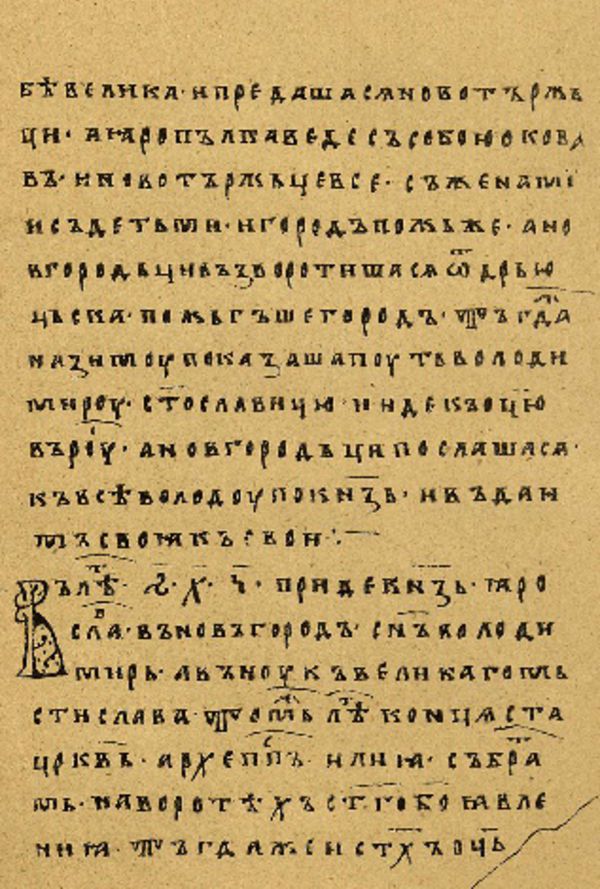 бѣвелика · и предашасѧ новотърж
ци · а ꙗрополъка ведесъ собою окова
въ · и новотържьце все · съ женами
и съ детьми · и городъ пожьже · а но
вгородьци възворотишасѧ ѿ дрью
цьска · пожьгъше городъ · тъгда
на зимоу показаша поуть володи
мироу · стославицю · и и деꙗ къ оцю
въ роу · а новгородьци послашасѧ ·
къ всѣволодоу по кнѧзь · и въда и
мъ свои къ свои ⁘
Въ лѣ · ѕ · х · ч · приде кнѧзь · ꙗро
сла · въ новъгородъ · снъ володи
мирь · а въноукъ великаго мь
стислава · томь лѣ концѧ ста
црквь · архепп илиꙗ · съ бра
мь · на воротѣхъ стго богоꙗвле
ниꙗ · тъгда же и стхъ оць